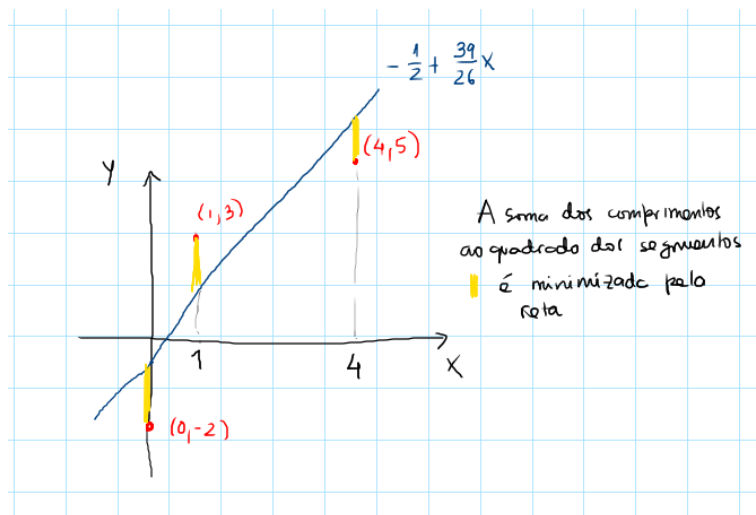 -1/2 + 39/26 x
(4,5)
Y
(1,3)
A soma dos comprimentos
ao quadrado dos segmentos
é minimizada pela
reta
1
4
X
(0,-2)